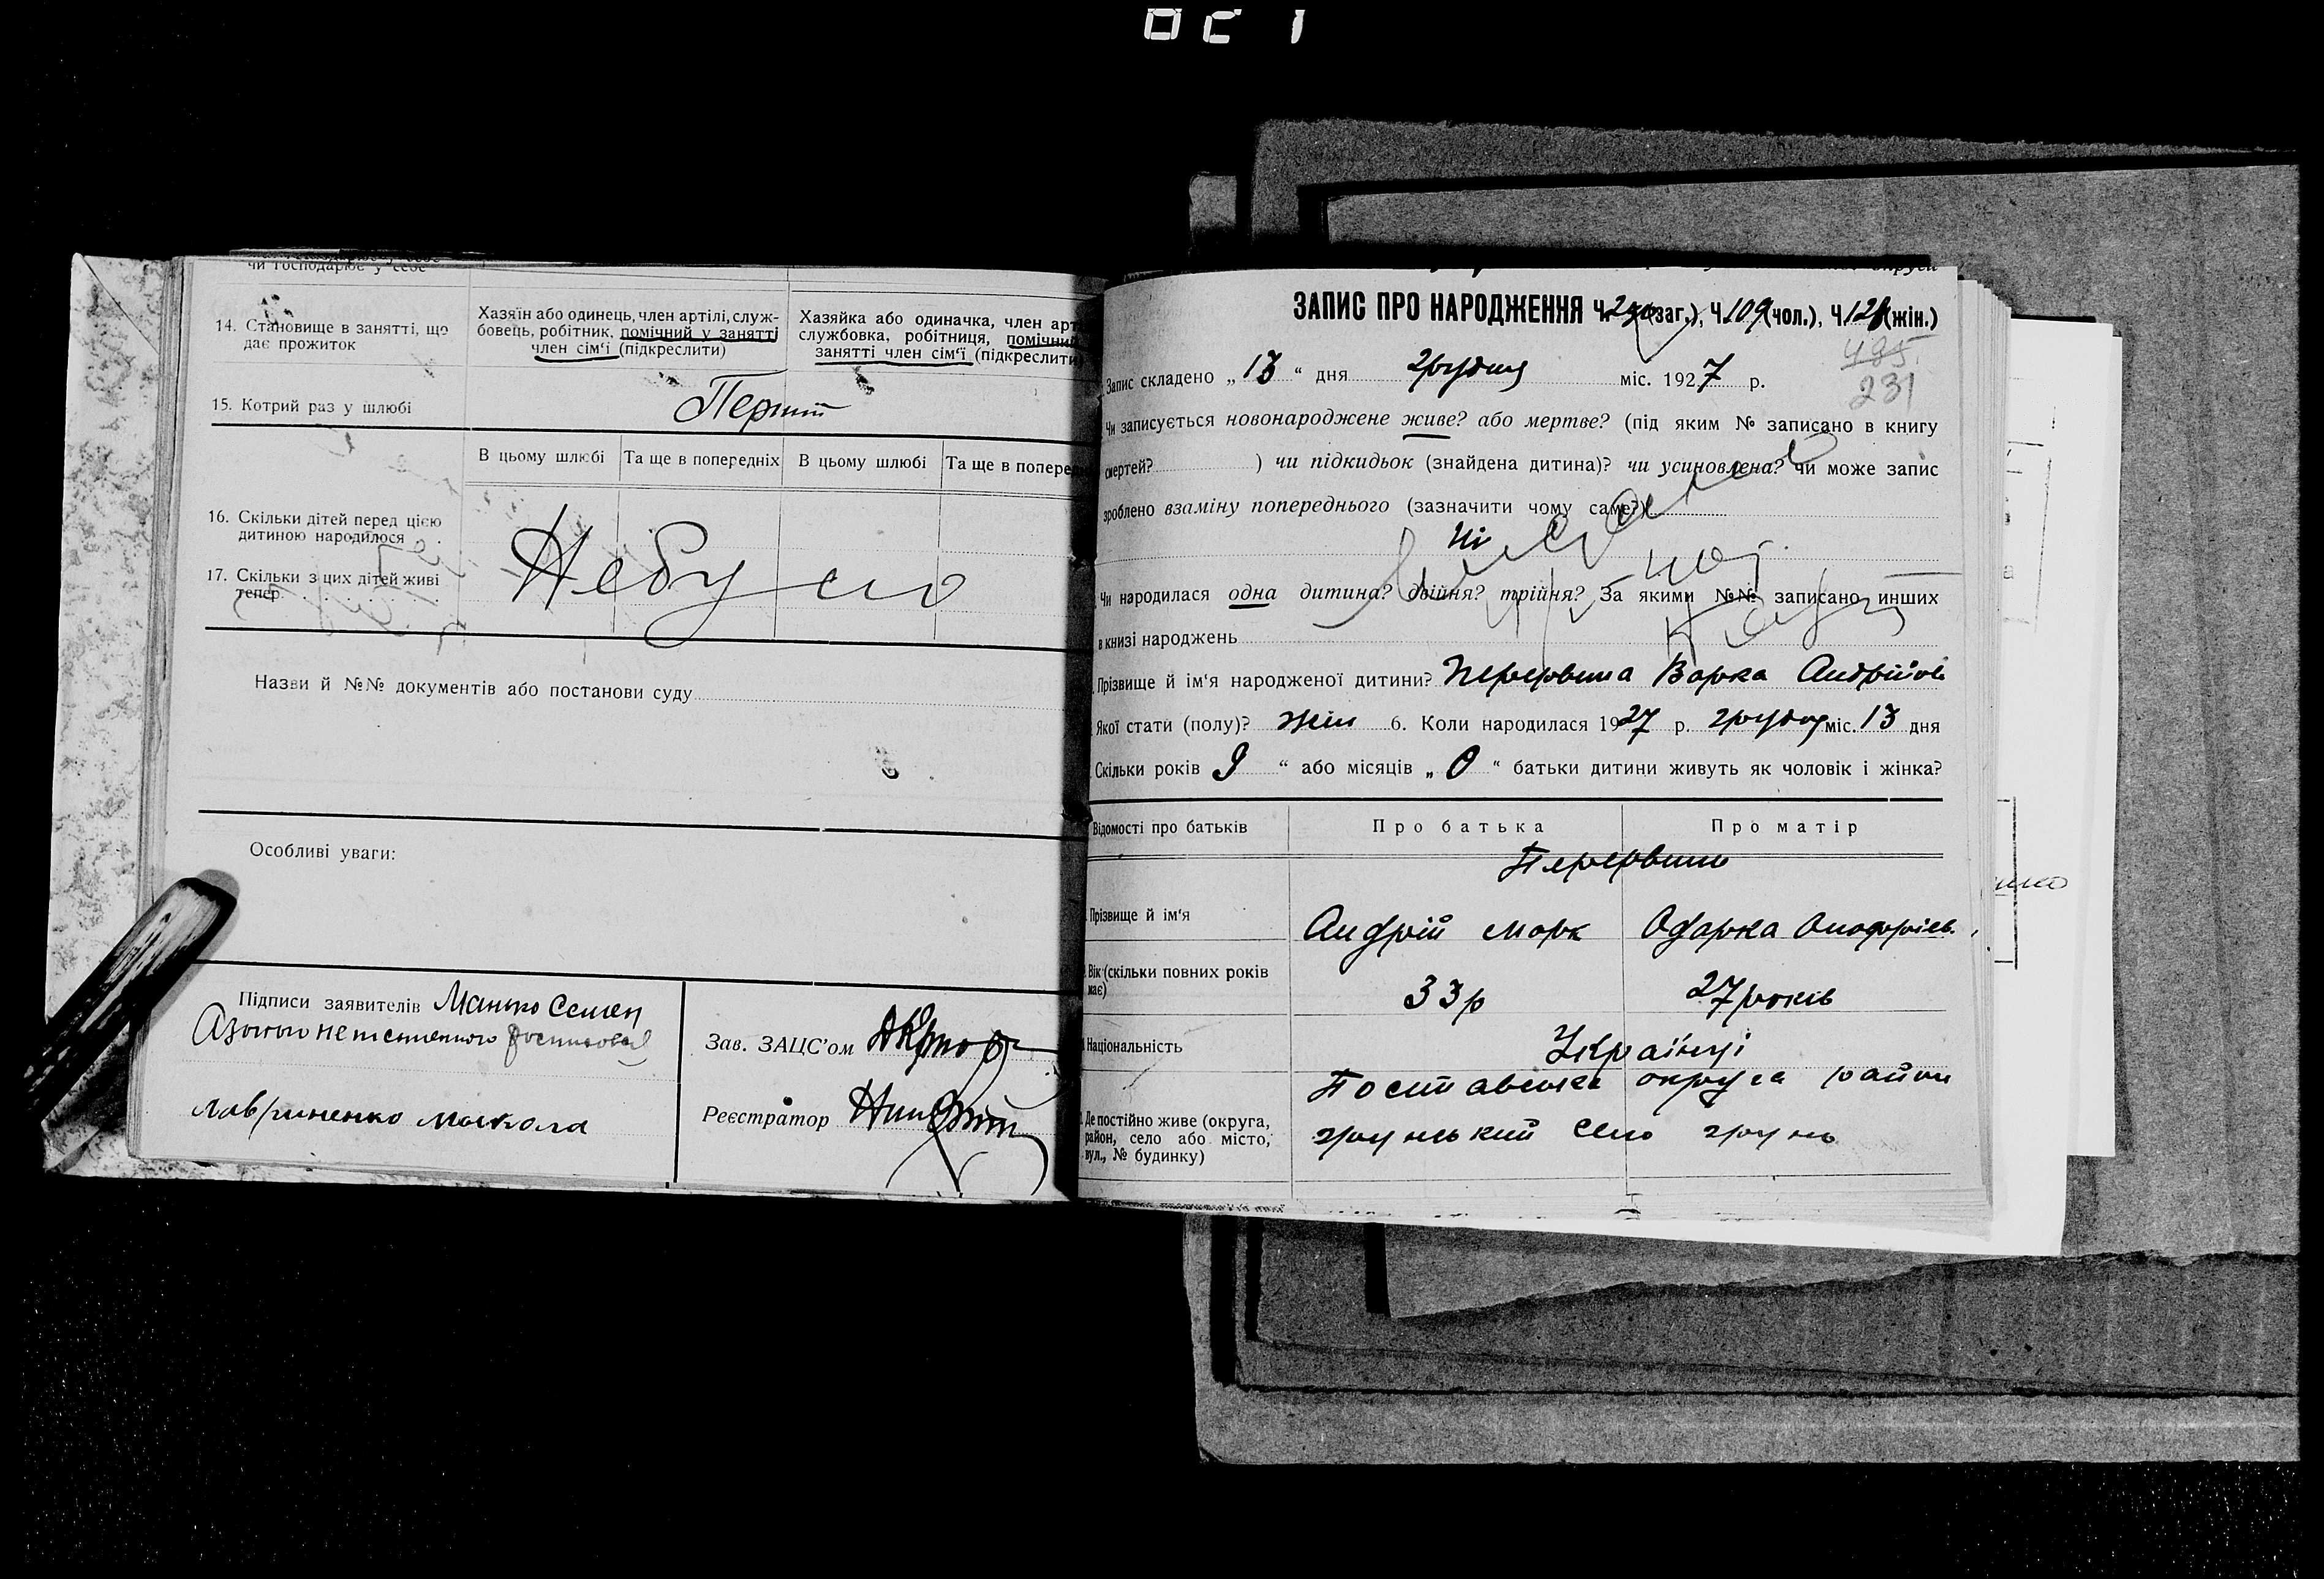 чи господарює у себе
14. Становище в занятті, що дає прожиток
Хазяїн або одинець, член артілі, служ-
бовець, робітник, помічний у занятті
член сім'ї (підкреслити)
Хазяйка або одиначка, член арт
службовка, робітниця, помічни
занятті член сім'ї (підкреслити
15. Котрий раз у шлюбі
Перший
В цьому шлюбі Та ще в попередніх В цьому шлюбі Та ще в попере
16. Скільки дітей перед цією
дитиною народилося
17. Скільки з цих дітей живі
тепер
Небуло
Назви й №№ документів або постанови суду
Особливі уваги:
Підписи заявителів Манько Семен
Азанього неписменного росписався
Лавриненко Микола
Зав. ЗАЦС'ом
Реєстратор
ЗАПИС ПРО НАРОДЖЕННЯ Ч. (заг.), Ч. 109 (чол.), Ч. (жін.)
485
231
Запис складено „ 13 “ дня грудня міс. 1927 р.
Чи записується новонароджене живе? або мертве? (під яким № записано в книгу
смертей? ) чи підкидьок (знайдена дитина)? чи усиновлена? чи може запис
зроблено взаміну попереднього (зазначити чому саме?)
Ні
Чи народилася одна дитина? двійня? трійня? За якими №№ записано инших
в книзі народжень
Прізвище й ім'я народженої дитини? Перервина Варка Андріїов
Якої стати (полу)? жін 6. Коли народилася 1927 р. грудня міс. 13 дня
Скільки років 9 “ або місяців „ 0 “ батьки дитини живуть як чоловік і жінка?
Відомості про батьків Про батька Про матір
Перервини
Прізвище й ім'я
Андрій Марк Одарка Онофріев.
Вік (скільки повних років
має)
33р 27 років
Національність
Українці
Де постійно живе (округа,
район, село або місто,
вул., № будинку)
Полтавська округа район
грунський село грунь